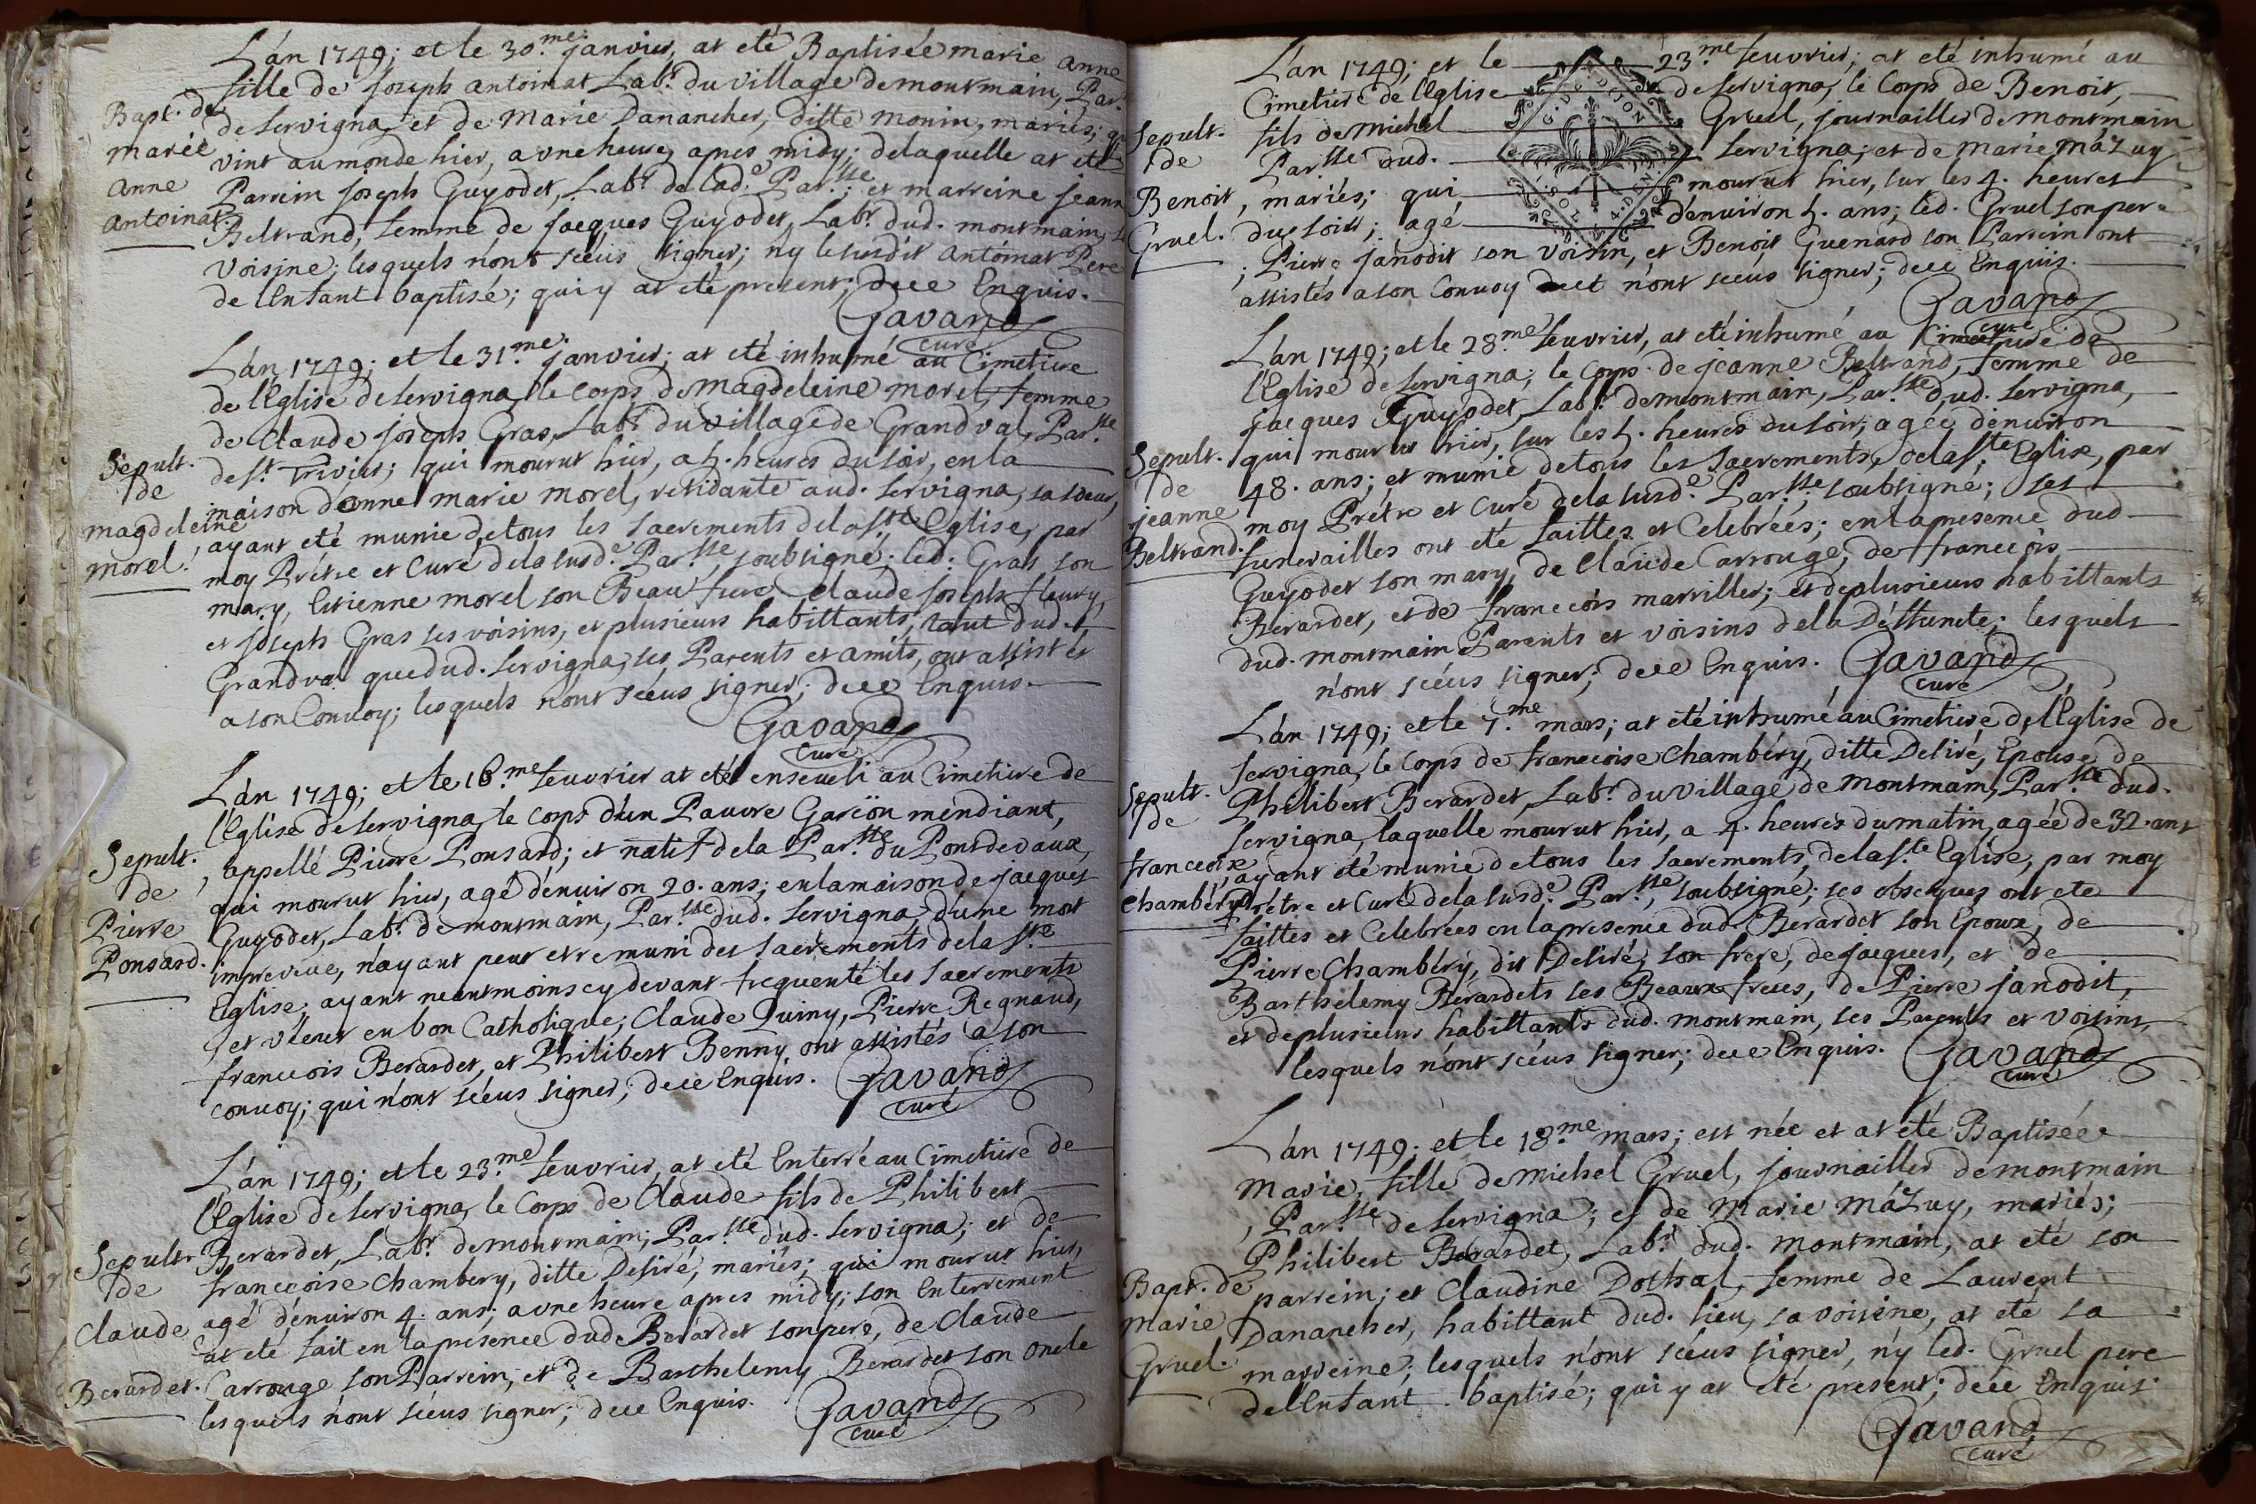 L'an 1749; et le 30.me janvier, at eté Baptisée marie anne
fille de Joseph antoinat Lab.r du village de montmain, Par.
Bapt. de
marie
anne
antoinat
de Servigna, et de Marie Dananeher, ditte monin, mariés; q
vint au monde hier, a vne heure, apres midy; de laquelle at eté
Parrein Joseph Guyodet, Lab.r de lad.e Par.sse; et marreine jeann
Beltrand, femme de Jacques Guyodet, Lab.r dud. montmain, s
voisine; lesquels n'ont sceüs signer; ny le susdit antoinat Pere
de l'enfant baptisé; qui y at eté present; dece Enquis.
Gavand
curé
L'an 1749; et le 31.me janvier; at eté inhumé au Cimetiere
de l'Eglise de Servigna, le corps de magdeleine morel, femme
de Claude joseph Gras, Lab.r du village de Grandval, Par.sse
Sepult.
de
magdeleine
morel.
de S.t Trivier; qui mourut hier, a 5. heures du soir, en la
maison d'anne marie morel, residante aud. Servigna, sa soeur,
ayant eté munie de tous les sacrements de la S.te Eglise, par
moy Prétre et Curé de la susd.e Par.sse, soubsigné; led. Gras son
mary, Etienne morel son Beau frere, Claude joseph fleury,
et joseph Gras ses voisins, et plusieurs habittants, tant dud.
Grandval que dud. Servigna, ses Parents et amits, ont assistés
a son Convoy; lesquels n'ont sceüs signer; dece Enquis.
Gavand
curé
L'an 1749; et le 16.me feuvrier at eté enseueli au Cimetiere de
l'Eglise de Servigna, le corps d'un Pauvre Garçon mendiant,
Sepult.
de
Pierre
Ponsard.
, appellé Pierre Ponsard; et natif de la Par.sse du Pontdevaux,
qui mourut hier, agé d'enuiron 20. ans; en la maison de jacques
Guyodet, Lab.r de montmain, Par.sse dud. Servigna, d'une mort
impreveüe, n'ayant peut etre muni des sacrements de la S.te
Eglise, ayant neantmoins cy devant frequenté les sacrements
et vescut en bon Catholique; Claude Quiny, Pierre Regnaud,
francois Berardet, et Philibert Benny, ont assistés a son
convoy; qui n'ont sceüs signer; dece Enquis.
Gavand
curé
L'an 1749; et le 23.me feuvrier, at eté Enterré au Cimetiere de
l'Eglise de Servigna, le Corps de Claude fils de Philibert
Sepultr
de
Claude
Berardet.
Berardet, Lab.r de montmain; Par.sse dud. Servigna; et de
francçoise chambery, ditte Desiré, mariés; qui mourut hier,
agé d'enuiron 4. ans; a vne heure apres midy; son Enterrement
at eté fait en la presence dud. Berardet son pere, de Claude
Carrouge son Parrein, et de Barthelemy Berardet son oncle
lesquels n'ont sceüs signer; dece Enquis.
Gavand
curé
L'an 1749; et le 23.me feuvrier; at eté inhumé au
Cimetiere de l'Eglise de Servigna, le Corps de Benoit,
Sepult.
de
Benoit
Gruel.
fils de Michel Gruel, journaillier de montmain
Par.sse dud. Servigna; et de marie mâzuy
, mariés; qui mourut hier, sur les 4. heures
du soir; agé d'enuiron 5. ans; led. Gruel son pere
; Pierre janodit son voisin, et Benoit Guenard son Parrein ont
assistés a son Convoy et n'ont sceüs signer; dece Enquis.
Gavand
curé
L'an 1749; et le 28.me feuvrier, at eté inhumé au Cimetiere de
l'Eglise de Servigna; le corps de jeanne Beltrand, femme de
jacques Guyodet, Lab.r de montmain, Par.sse dud. Servigna,
Sepult.
de
jeanne
Beltrand.
qui mourut hier, sur les 5. heures du soir; agée d'enuiron
48. ans; et munie de tous les sacrements, de la S.te Eglise, par
moy Prétre et Curé de la susd.e Par.sse soubsigné; ses
funerailles ont eté faittes et Celebrées; en la presence dud.
Guyodet son mary, de Claude Carrouge, de francçois
Berardet, et de francçois marviller; et de plusieurs habittants
dud. montmain Parents et voisins de la Déffuncte; lesquels
n'ont sceüs signer; dece Enquis.
Gavand
curé
L'an 1749; et le 7.me mars; at eté inhumé au Cimetiere de l'Eglise de
Servigna, le Corps de francçoise Chambéry, ditte Desiré, Epouse de
Sepult.
de
francçoise
Chambéry
Philibert Berardet, Lab.r du village de montmain, Par.sse dud.
Servigna, laquelle mourut hier, a 4. heures du matin, agée de 32. ans
, ayant eté munie de tous les sacrements, de la S.te Eglise, par moy
Prétre et Curé de la susd.e Par.sse, soubsigné; ses obseques ont eté
faittes et Celebrées en la presence dud. Berardet son Epoux, de
Pierre Chambéry, dit Desiré, son frere, de jacques, et de
Barthelemy Berardets ses Beaux freres, de Pierre janodit,
et de plusieurs habittants dud. montmain, ses Parents et voisins,
lesquels n'ont sceüs signer; dece Enquis.
Gavand
curé
L'an 1749; et le 18.me mars; est née et at eté Baptisée
Marie, fille de Michel Gruel, journaillier de montmain
, Par.sse de Servigna; et de Marie Mâzuy, mariés;
Bapt. de
Marie
Gruel.
Philibert Berardet, Lab.r dud. montmain, at eté son
parrein; et Claudine Dothal, femme de Laurent
Dananeher, habittant dud. lieu, sa voisine, at eté sa
marreine; lesquels n'ont sceüs signer, n'y led. Gruel pere
de l'enfant baptisé; qui y at eté present; dece Enquis.
Gavand
curé